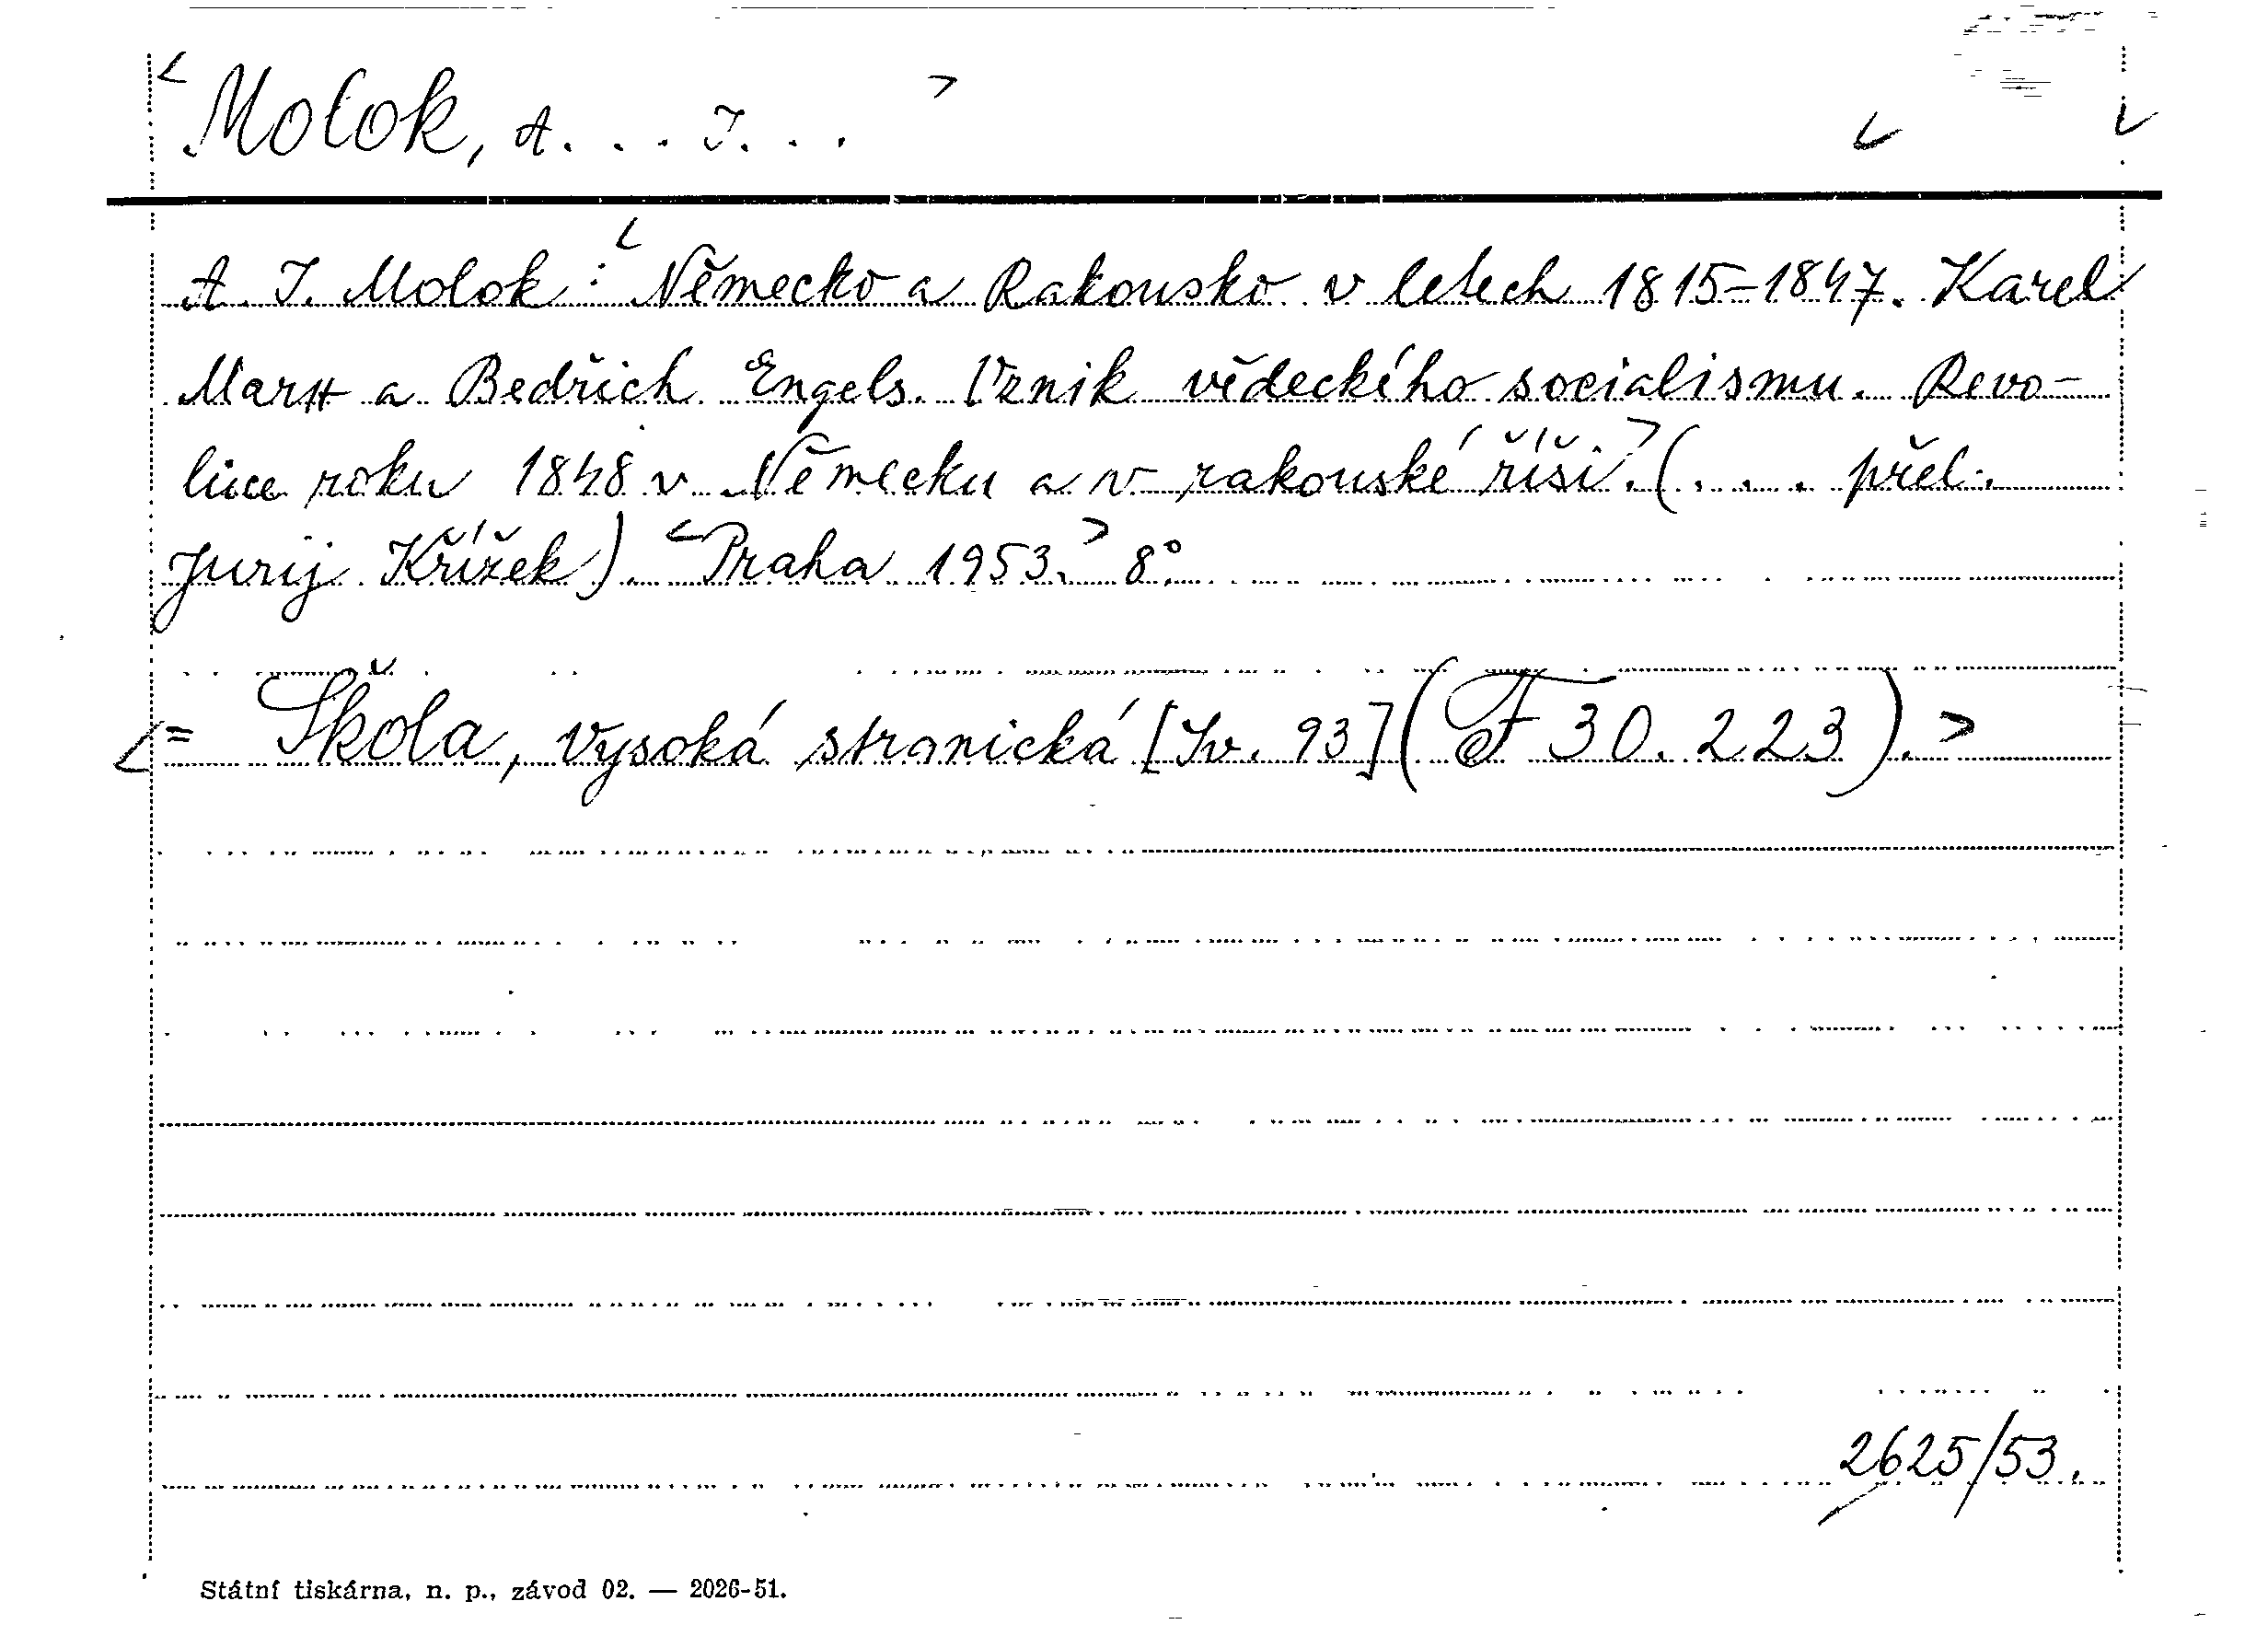 <Molok, A. . . I. . .>
A. I. Molok: <Německo a Rakousko v letech 1815-1847. Karel
Marx a Bedřich Engels. Vznik vědeckého socialismu. Revo-
luce roku 1848 v Německu a v rakouské říši.> (. . . přel.
Jurij Křížek). <Praha 1953.> 8°.
<= Škola, Vysoká stranická [Sv. 93] (F 30.223).>
2625/53.
Státní tiskárna, n. p., závod 02. — 2026-51.